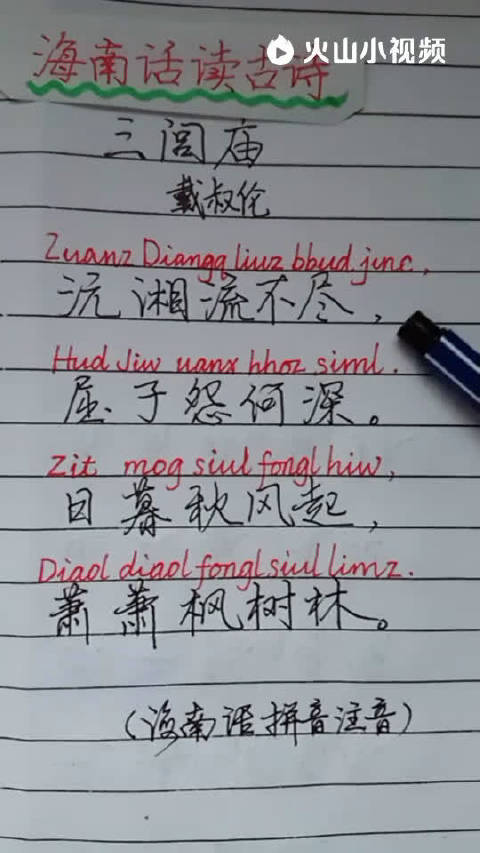 火山小视频
海南话读古诗
三闾庙
戴叔伦
Zuanz Diangq liuz bbud jinc,
沅湘流不尽,
Hud Jiw uanx hhoz siml.
屈子怨何深。
Zit mog siul fongl hiw,
日暮秋风起,
Diaol diaol fongl siul limz.
萧萧枫树林。
(海南话拼音注音)